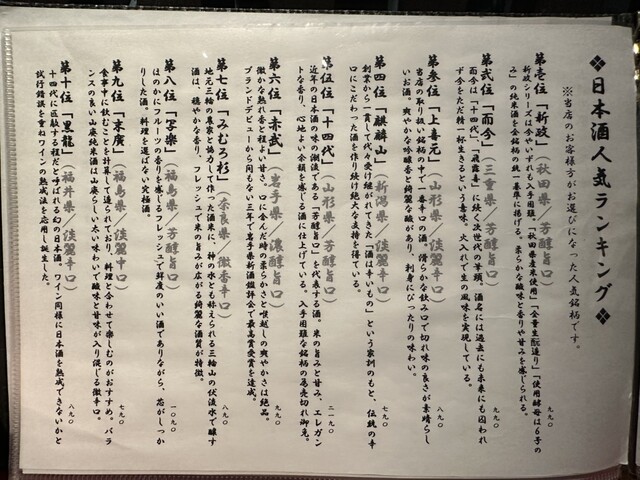 ❖日本酒人気ランキング❖
※当店のお客様方がお選びになった人気銘柄です。
第壱位「新政」(秋田県/芳醇旨口)
九九〇
新政シリーズは今やいずれも入手困難。「秋田県産米使用」「全量生酛造り」「使用酵母は6号の
み」の純米酒を全銘柄の統一基準に掲げる。柔らかな酸味と香りや甘みを感じられる。
第弐位「而今」(三重県/芳醇旨口)
九九〇
而今は「十四代」「飛露喜」に続く次世代の筆頭。酒名には過去にも未来にも囚われ
ず今をただ精一杯生きるという意味。火入れで生の風味を実現している。
第参位「上喜元」(山形県/淡麗辛口)
八九〇
当店の取り扱い銘柄の中で一番辛口の酒。滑らかな飲み口で切れ味の良さが素晴らし
いお酒。爽やかな吟醸香と綺麗な酸があり、刺身にぴったりの味わい。
第四位「麒麟山」(新潟県/淡麗辛口)
七九〇
創業から一貫して代々受け継がれてきた「酒は辛いもの」という家訓のもと、伝統の辛
口にこだわった酒を作り続け絶大な支持を得ている。
第伍位「十四代」(山形県/芳醇旨口)
二一九〇
近年の日本酒の味の潮流である「芳醇旨口」を代表する酒。米の旨みと甘み、エレガン
トな香り、心地よい余韻を感じる酒に仕上げている。入手困難な銘柄の為売切れ御免。
第六位「赤武」(岩手県/濃醇旨口)
九九〇
微かな熟れ香と程よい甘さ、口に含んだ時の柔らかさと喉越しの爽やかさは絶品。
ブランドデビューから間もない三年で岩手県新酒鑑評会で最高賞受賞を達成。
第七位「みむろ杉」(奈良県/微香辛口)
八九〇
地元三輪の農家と協力して作った酒米に、神の水とも称えられる三輪山の伏流水で醸す
酒は、穏やかな香り、フレッシュで米の旨みが広がる綺麗な酒質が特徴。
第八位「写楽」(福島県/芳醇旨口)
一〇九〇
ほのかにフルーツの香りを感じるフレッシュで鮮度のいい酒でありながら、芯がしっか
りした酒。料理を選ばない究極酒。
第九位「末廣」(福島県/淡麗辛口)
七九〇
食事中に飲むことを計算して造られており、料理と合わせて楽しむのがおすすめ。バラ
ンスの良い山廃純米酒は山廃らしい太い味わいで酸味と甘味が入り混じる微辛口。
第十位「黒龍」(福井県/淡麗辛口)
八九〇
十四代に匹敵する程だと呼ばれる幻の日本酒。ワイン同様に日本酒を熟成できないかと
試行錯誤を重ねワインの熟成法を応用し誕生した。